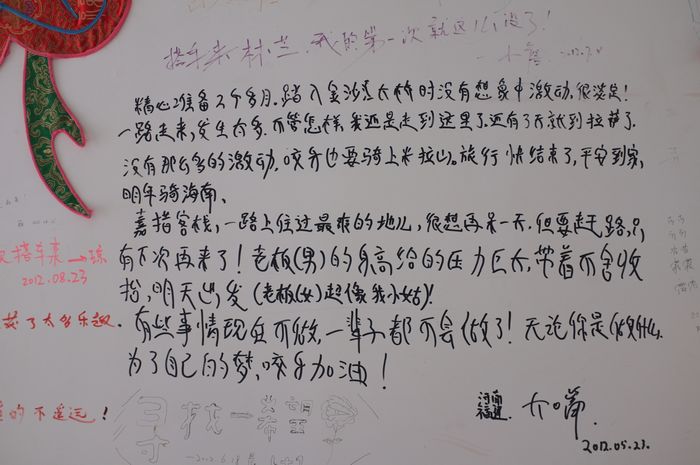 搭车来林芝,我的第一次就这么没了!
精心准备2个多月,踏入金沙江大桥时没有想象中激动,很淡定!
一路走来,发生太多,不管怎样,我还是走到这里了,还有3天就到拉萨了
没有那么多的激动,咬牙也要骑上米拉山。旅行快结束了,平安到家,
明年骑海南、
嘉措客栈,一路上住过最爽的地儿,很想再呆一天,但要赶路,只
有下次再来了!老板(男)的身高给的压力巨大,带着不舍收
拾,明天出发(老板(女)超像我小姑)!
有些事情现在不做,一辈子都不会做了!无论你是做什么,
为了自己的梦,咬牙加油!
河南
福建
大口篇
2012.05.23.
搭车来→琼
2012.08.23
获了太多乐趣.
的不遥远!
寻找一希望